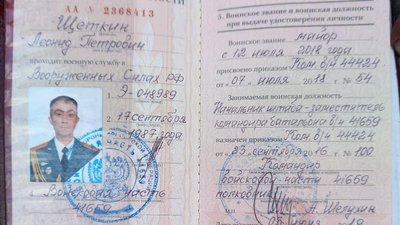 АА № 2368413
Щеткин
Леонид Петрович
проходит военную службу в
Вооруженных Силах РФ
Э-048989
17 сентября
1987 года
Войсковая часть
41659
5. Воинское звание и воинская должность
при выдаче удостоверения личности
Воинское звание майор
с 12 июля 2018 года
присвоено приказом Ком. в/ч 44424
от "07" июля 2018 № 54
Занимаемая воинская должность
Начальник штаба - заместитель
командира батальона в/ч 41659
назначен приказом Ком. в/ч 44424
от "23" сентября 2016 № 100
Командир
войсковой части 41659
полковник
А. Шелухин